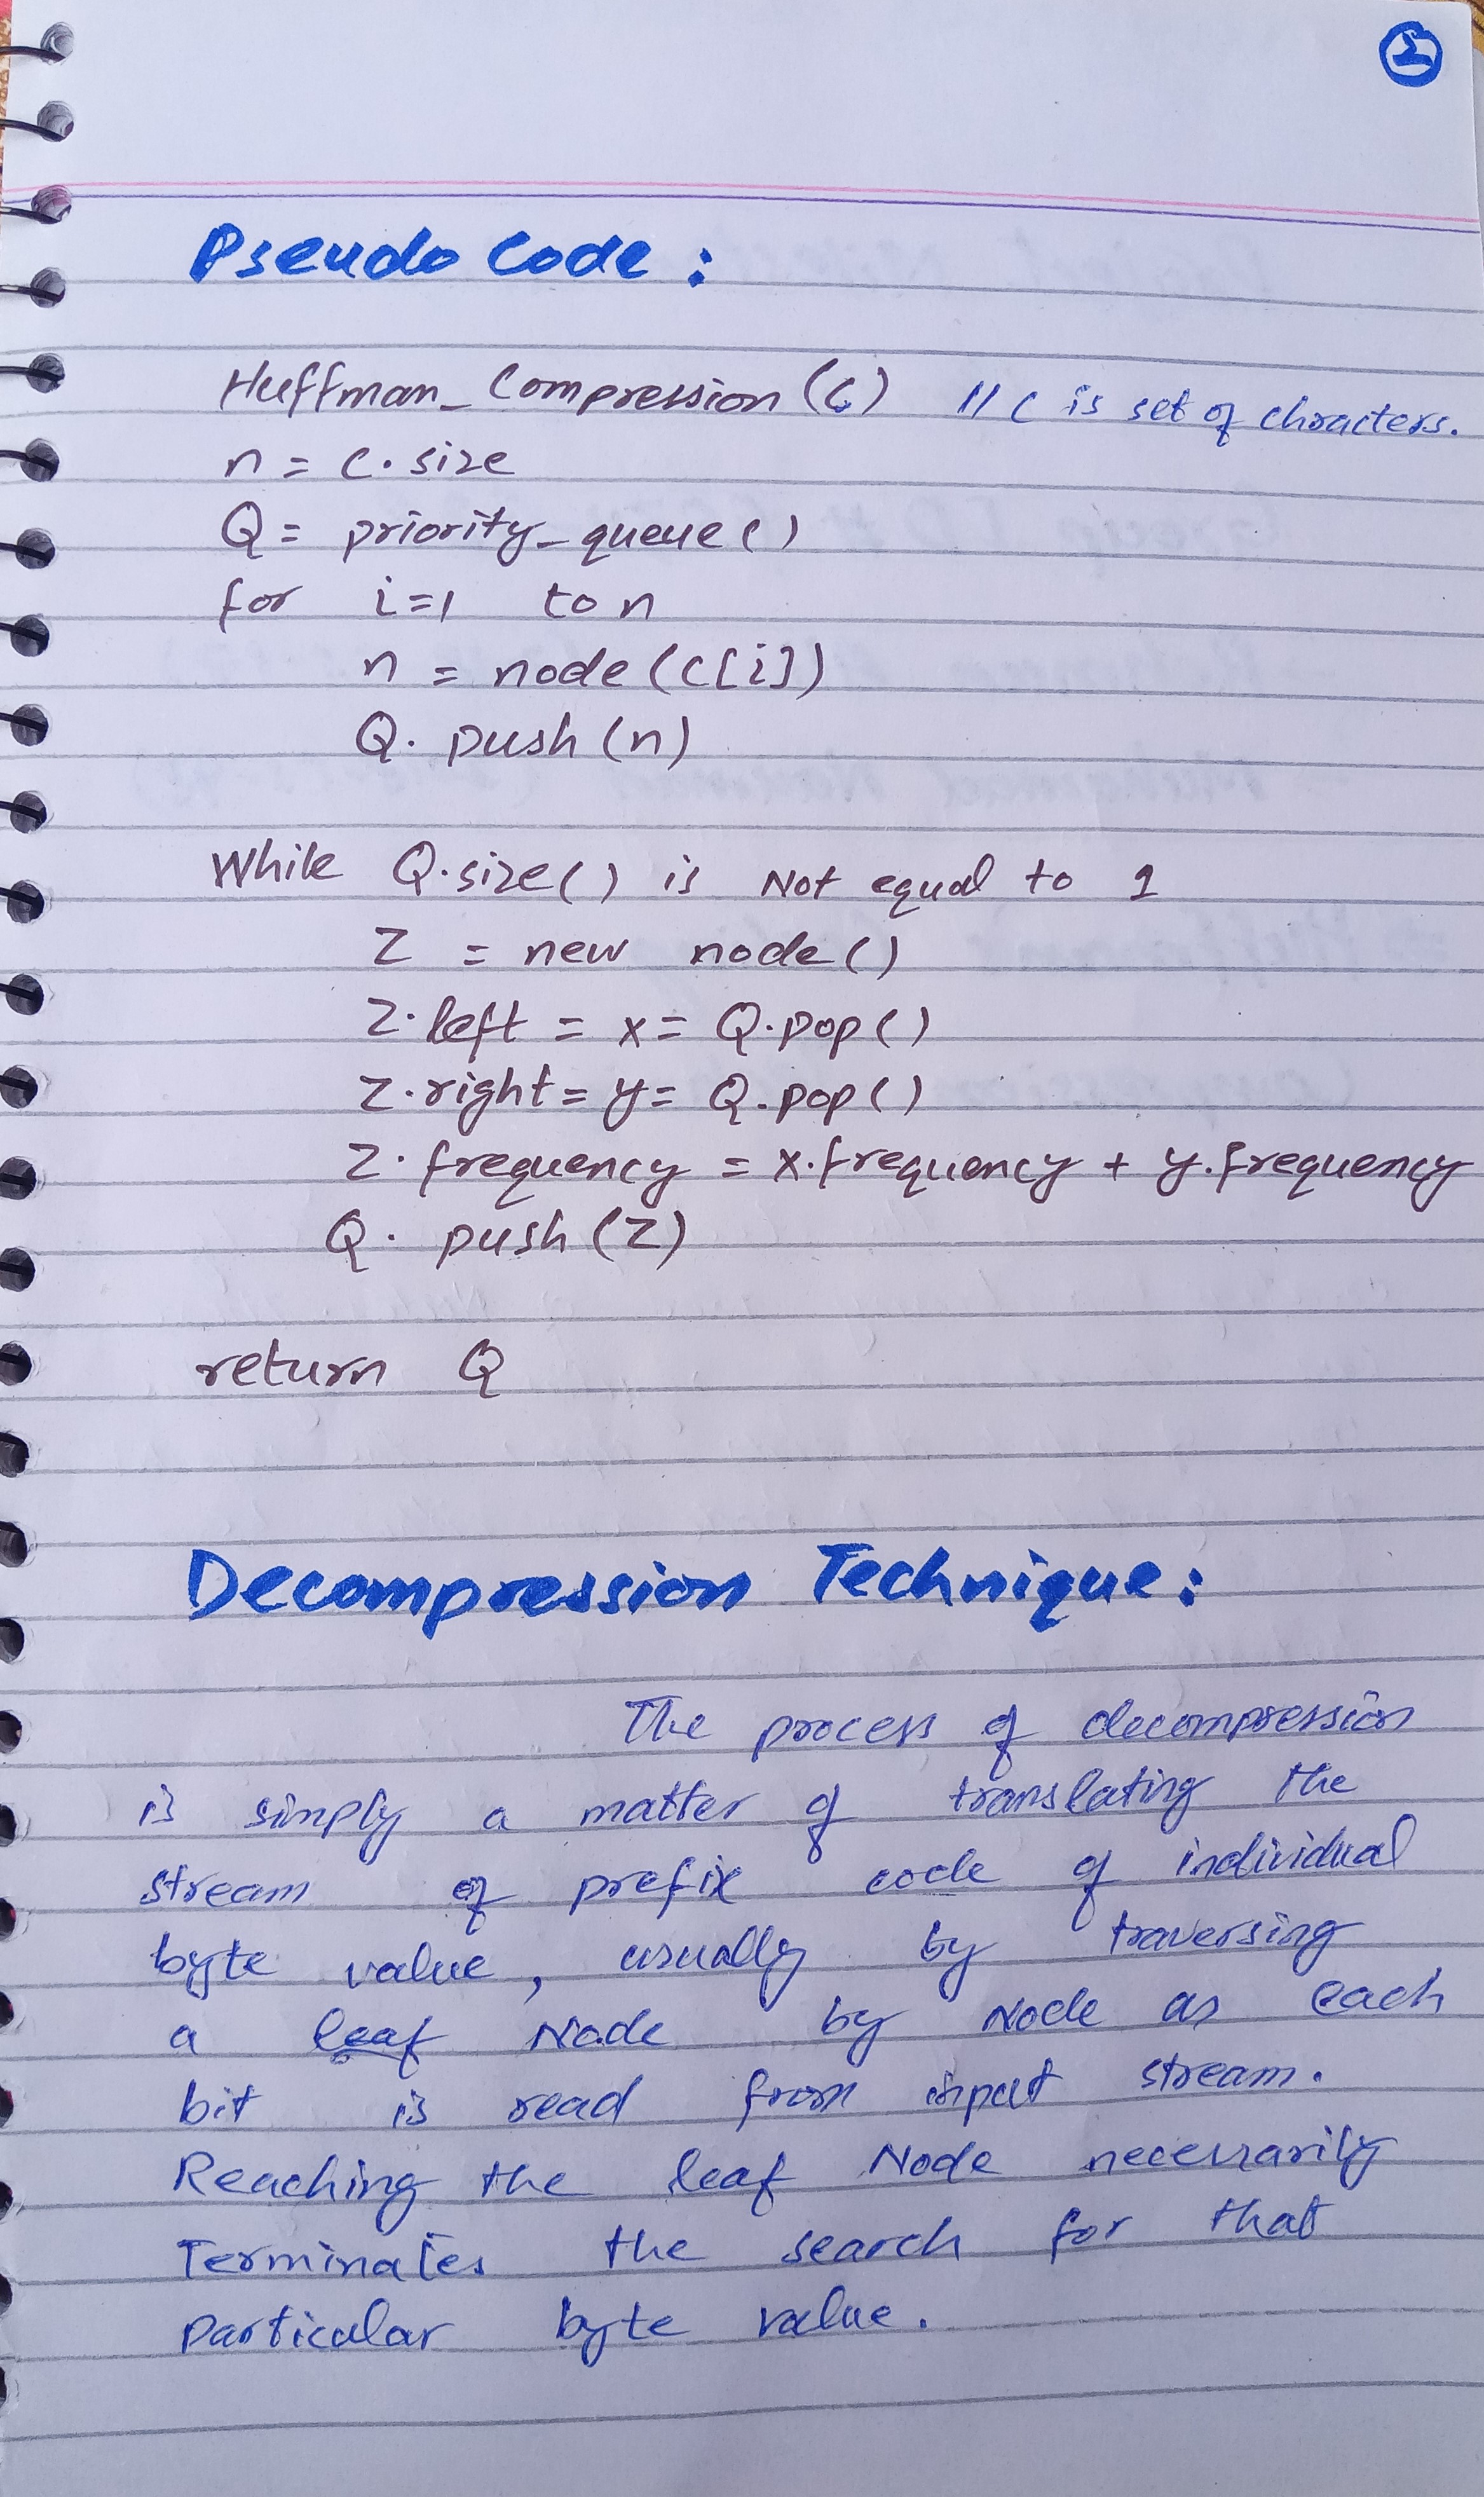 2
Pseudo Code :
Huffman_Compression (C) // C is set of chracters.
n = C. size
Q = priority_queue()
for i=1 to n
n = node (C[i])
Q. push (n)
While Q.size() is Not equal to 1
Z = new node()
Z.left = x = Q.pop()
Z.right = y = Q.pop()
Z.frequency = x.frequency + y.frequency
Q. push (Z)
return Q
Decompression Technique :
The process of decompression
is simply a matter of translating the
stream of prefix code of individual
byte value, usually by traversing
a leaf Node by Node as each
bit is read from input stream.
Reaching the leaf Node necessarily
Terminates the search for that
particular byte value.